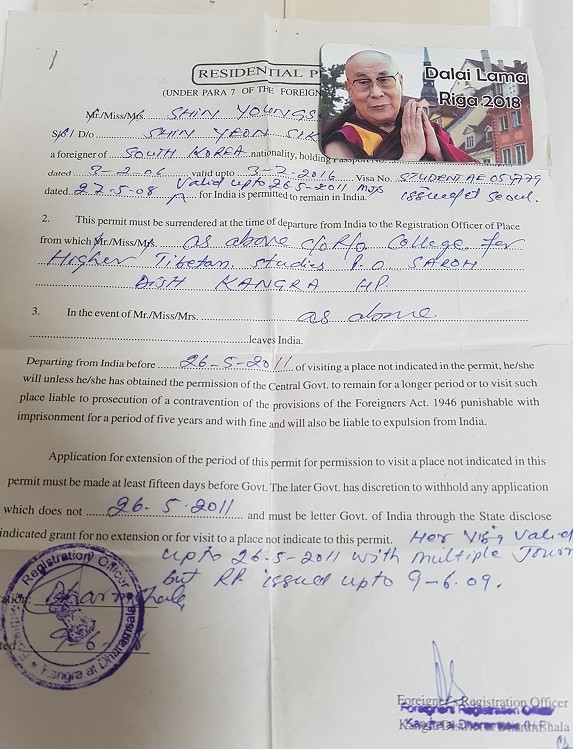 RESIDENTIAL P
(UNDER PARA 7 OF THE FOREIGN
Dalai Lama
Riga 2018
Mr./Miss/Mrs. SHIN YOUNGS
S/o / D/o SHIN YEON SIK
a foreigner of SOUTH KOREA nationality, holding Passport No.
dated 3-2-06 valid upto 3-2-2016 Visa No. STUDENT AE 051779
dated 27-5-08 Valid upto 26-5-2011 for India is permitted to remain in India. issued at Seoul.
2. This permit must be surrendered at the time of departure from India to the Registration Officer of Place
from which Mr./Miss/Mrs. as above c/o R/o College for
Higher Tibetan studies P.O. SAROH
Distt KANGRA HP.
3. In the event of Mr./Miss/Mrs. as above.
leaves India.
Departing from India before 26-5-2011 of visiting a place not indicated in the permit, he/she
will unless he/she has obtained the permission of the Central Govt. to remain for a longer period or to visit such
place liable to prosecution of a contravention of the provisions of the Foreigners Act. 1946 punishable with
imprisonment for a period of five years and with fine and will also be liable to expulsion from India.
Application for extension of the period of this permit for permission to visit a place not indicated in this
permit must be made at least fifteen days before Govt. The later Govt. has discretion to withhold any application
which does not 26-5-2011 and must be letter Govt. of India through the State disclose
indicated grant for no extension or for visit to a place not indicate to this permit. Her Visa Valid
upto 26-5-2011 with multiple Journ
but RP issued upto 9-6-09.
Registration Officer
Kangra at Dharamsala
Foreigner Registration Officer
Foreigners Registration Officer
Kangra at Dharamsala (H.P.)